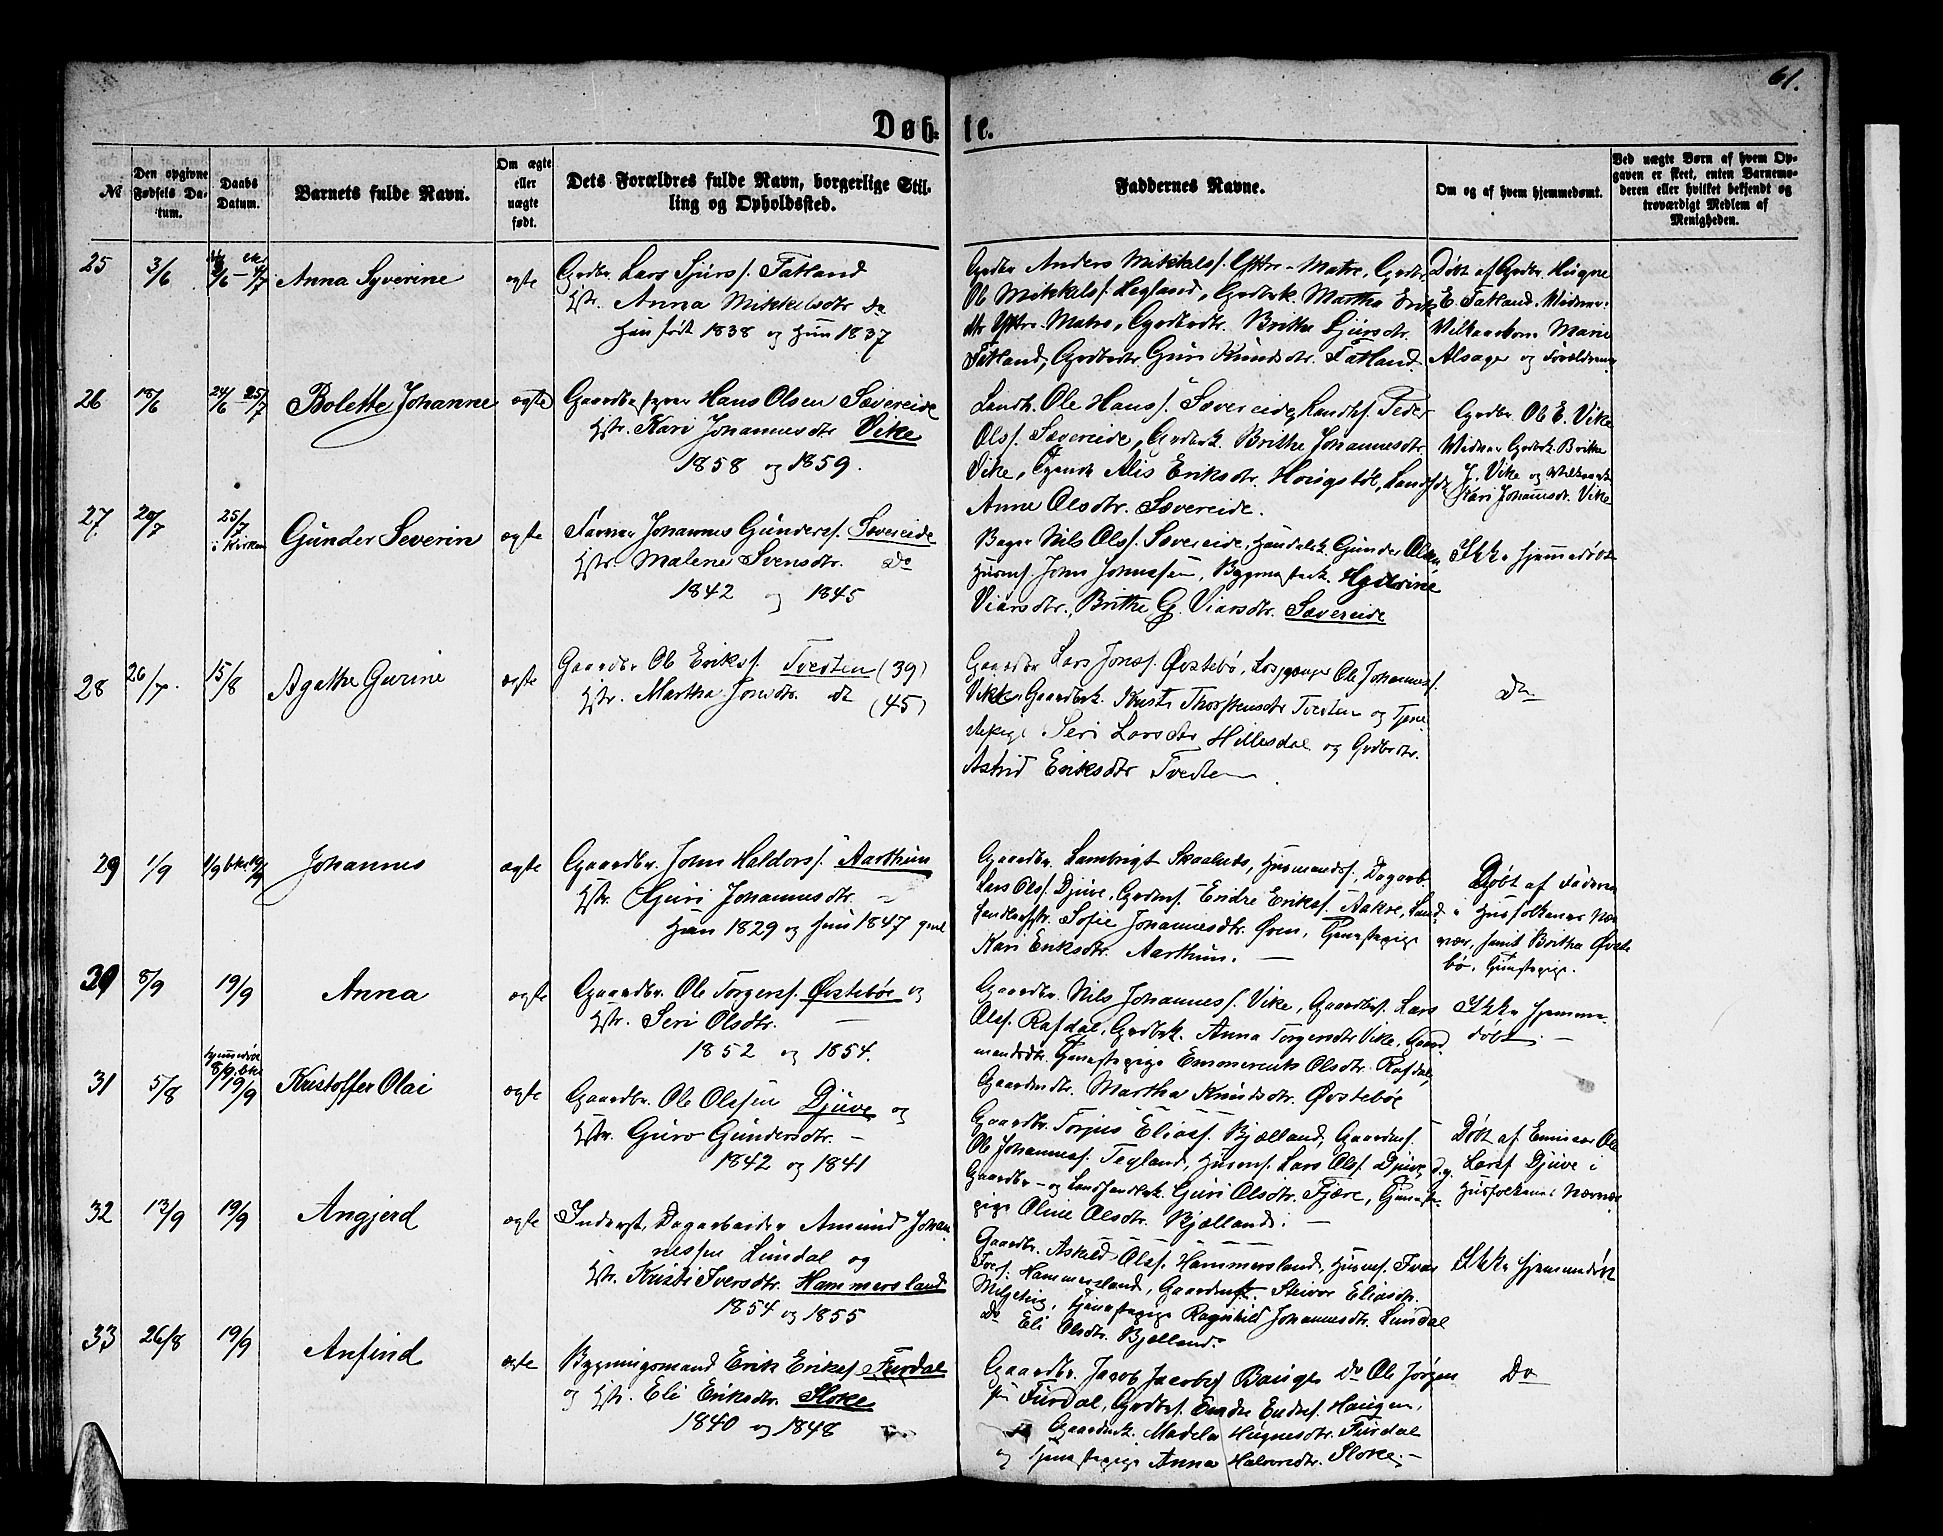 61.
Døbte.
№
Den opgivne Fødsels Datum.
Daabs Datum.
Barnets fulde Navn.
Om ægte eller uægte født.
Dets Forældres fulde Navn, borgerlige Stilling og Opholdssted.
Faddernes Navne.
Om og af hvem hjemmedøbt.
Ved uægte Børn af hvem Opgaven er skeet, enten Barnemoderen eller hvilket bekjendt og troværdigt Medlem af Menigheden.
25 3/6 Anna Syverine ægte
Grdbr. Lars Sjurs. Tatland
Hstr. Anna Mikkelsdtr Do
Han født 1838 og Hun 1837
Grdbr Anders Mikkels. Yttre-Matre, Grdbr.
Ole Mikkels. Hagland, Grdbrk. Martha Eriks
dtr Yttre Matre, Grdbrdtr. Brithe Sjursdtr.
Tatland, Grdbrdtr Guri Knudsdtr. Tatland
Døbt af Grdbr. Hugne
E. Tatland. Vidner:
Vilkaarskone Marie
Alsager og Forældrene
26 18/6 24/6 - 25/7 Bolette Johanne ægte
Gaardbestyrer Hans Olsen Sævereide
Hstr. Kari Johannesdtr Vike
1858 og 1859.
Landh. Ole Hans. Sævereide, Landhs. Peder
Ols. Sævereide, Grdbrk. Brithe Johannesdtr.
Vike, Alis Eriksdtr. Hougstøl,
Anne Olsdtr. Sævereide.
Grdbr. Ole E. Vike
Vidner Grdbrk. Brithe
J. Vike og
Kari Johannesdtr. Vike
27. 20/7 25/7 i Kirken Gunder Severin ægte
Farver Johannes Gunders. Sævereide
Hstr. Malene Svensdtr. Do
1842 og 1845
Bager Nils Ols. Sævereide, Handelsk. Gunder Olsen,
Husms. John Johnessen, Bygmesterk.
Viarsdtr., Brithe G. Viarsdtr. Sævereide
Ikke hjemmedøbt
28 26/7. 15/8 Agathe Gurine ægte
Gaardbr Ole Eriks. Tvedten (39)
Hstr. Martha Jonsdtr. do (45)
Gaardbr. Lars Jons. Øvstebø, Losjganger Ole Johannes.
Vikke, Gaardbrk. Kristi Thorstensdtr Tvedten og Tjene
stepige Seri Larsdtr Hillesdal og Grdbrdtr.
Astrid Eriksdtr Tvedten
Do
29 1/9 1/9 bkr 19/9 Johannes ægte
Gaardbr. John Haldors. Aarthun
Hstr. Guri Johannesdtr. -
Han 1829 og Hun 1847 gml
Gaardbr. Lambrigt Skaalnes, Husmands., Dagarb.
Lars Ols. Djuve, Grdms. Endre Eriks. Aakre, Land
handlerdtr. Sofie Johannesdtr. Øren, Tjenestepige
Kari Eriksdtr. Aarthun. -
Døbt af Faderen
i Husfolkenes Nær
vær, samt Britha Øvste
bø, Tjenstepige.
30 8/9 19/9 Anna ægte
Gaardbr. Ole Torgers. Øvstebøe og
Hstr. Seri Olsdtr. -
1852 og 1854.
Gaardbr. Nils Johannes. Vike, Gaardbs. Lars
Ols. Rafdal, Grdbrk. Anna Torgersdtr Vike, Gaard
mandsdtr. Tjenestepige Emmerentse Olsdtr. Rafdal,
Gaardmdtr. Martha Knudsdtr. Øvstebøe
Ikke hjemme-
døbt. -
31 5/8 hjemmedøbt 8/9, bkr 19/9 Kristoffer Olai ægte
Gaardbr. Ole Olssen Djuve og
Hstr. Guro Gundersdtr. -
1842 og 1841
Gaardbr. Torjus Elias. Bjælland, Gaardms.
Ole Johannes. Tegland, Husms. Lars Ols. Djuve,
Gaardbr- og Landhandlerk. Guri Olsdtr. Fjære, Tjeneste
pige Oline Olsdtr. Bjælland. -
Døbt af Emissær Ole
Lars. Djuve i
Husfolkenes Nærvær
32 12/9 19/9 Angjerd ægte
Inderst, Dagarbeider Amund Johan
nessen Lundal og
Hstr. Kristi Iversdtr. Hammersland
1854 og 1855
Gaardbr. Askild Ols. Hammersland, Husms. Ivar
Tors. Hammersland, Gaardmk. Steivor Eliasdtr.
Miljeteig, Tjenestepige Ragnhild Johannesdtr. Lundal
Do Eli Olsdtr. Bjælland.
Ikke hjemmedøbt
33 26/8 19/9 Anfind ægte
Bygningsmand Erik Eriks. Furdal
og Hstr. Eli Eriksdtr. Stoke
1840 og 1848
Gaardbr. Jacob Jacobs. Baugs Do Ole Jørgen
sen Furdal, Grdbs. Endre Endres. Haugen,
Gaardmk. Madela Hugnesdtr. Furdal
og Tjenestepige Anna Halvorsdtr. Stoke. -
Do